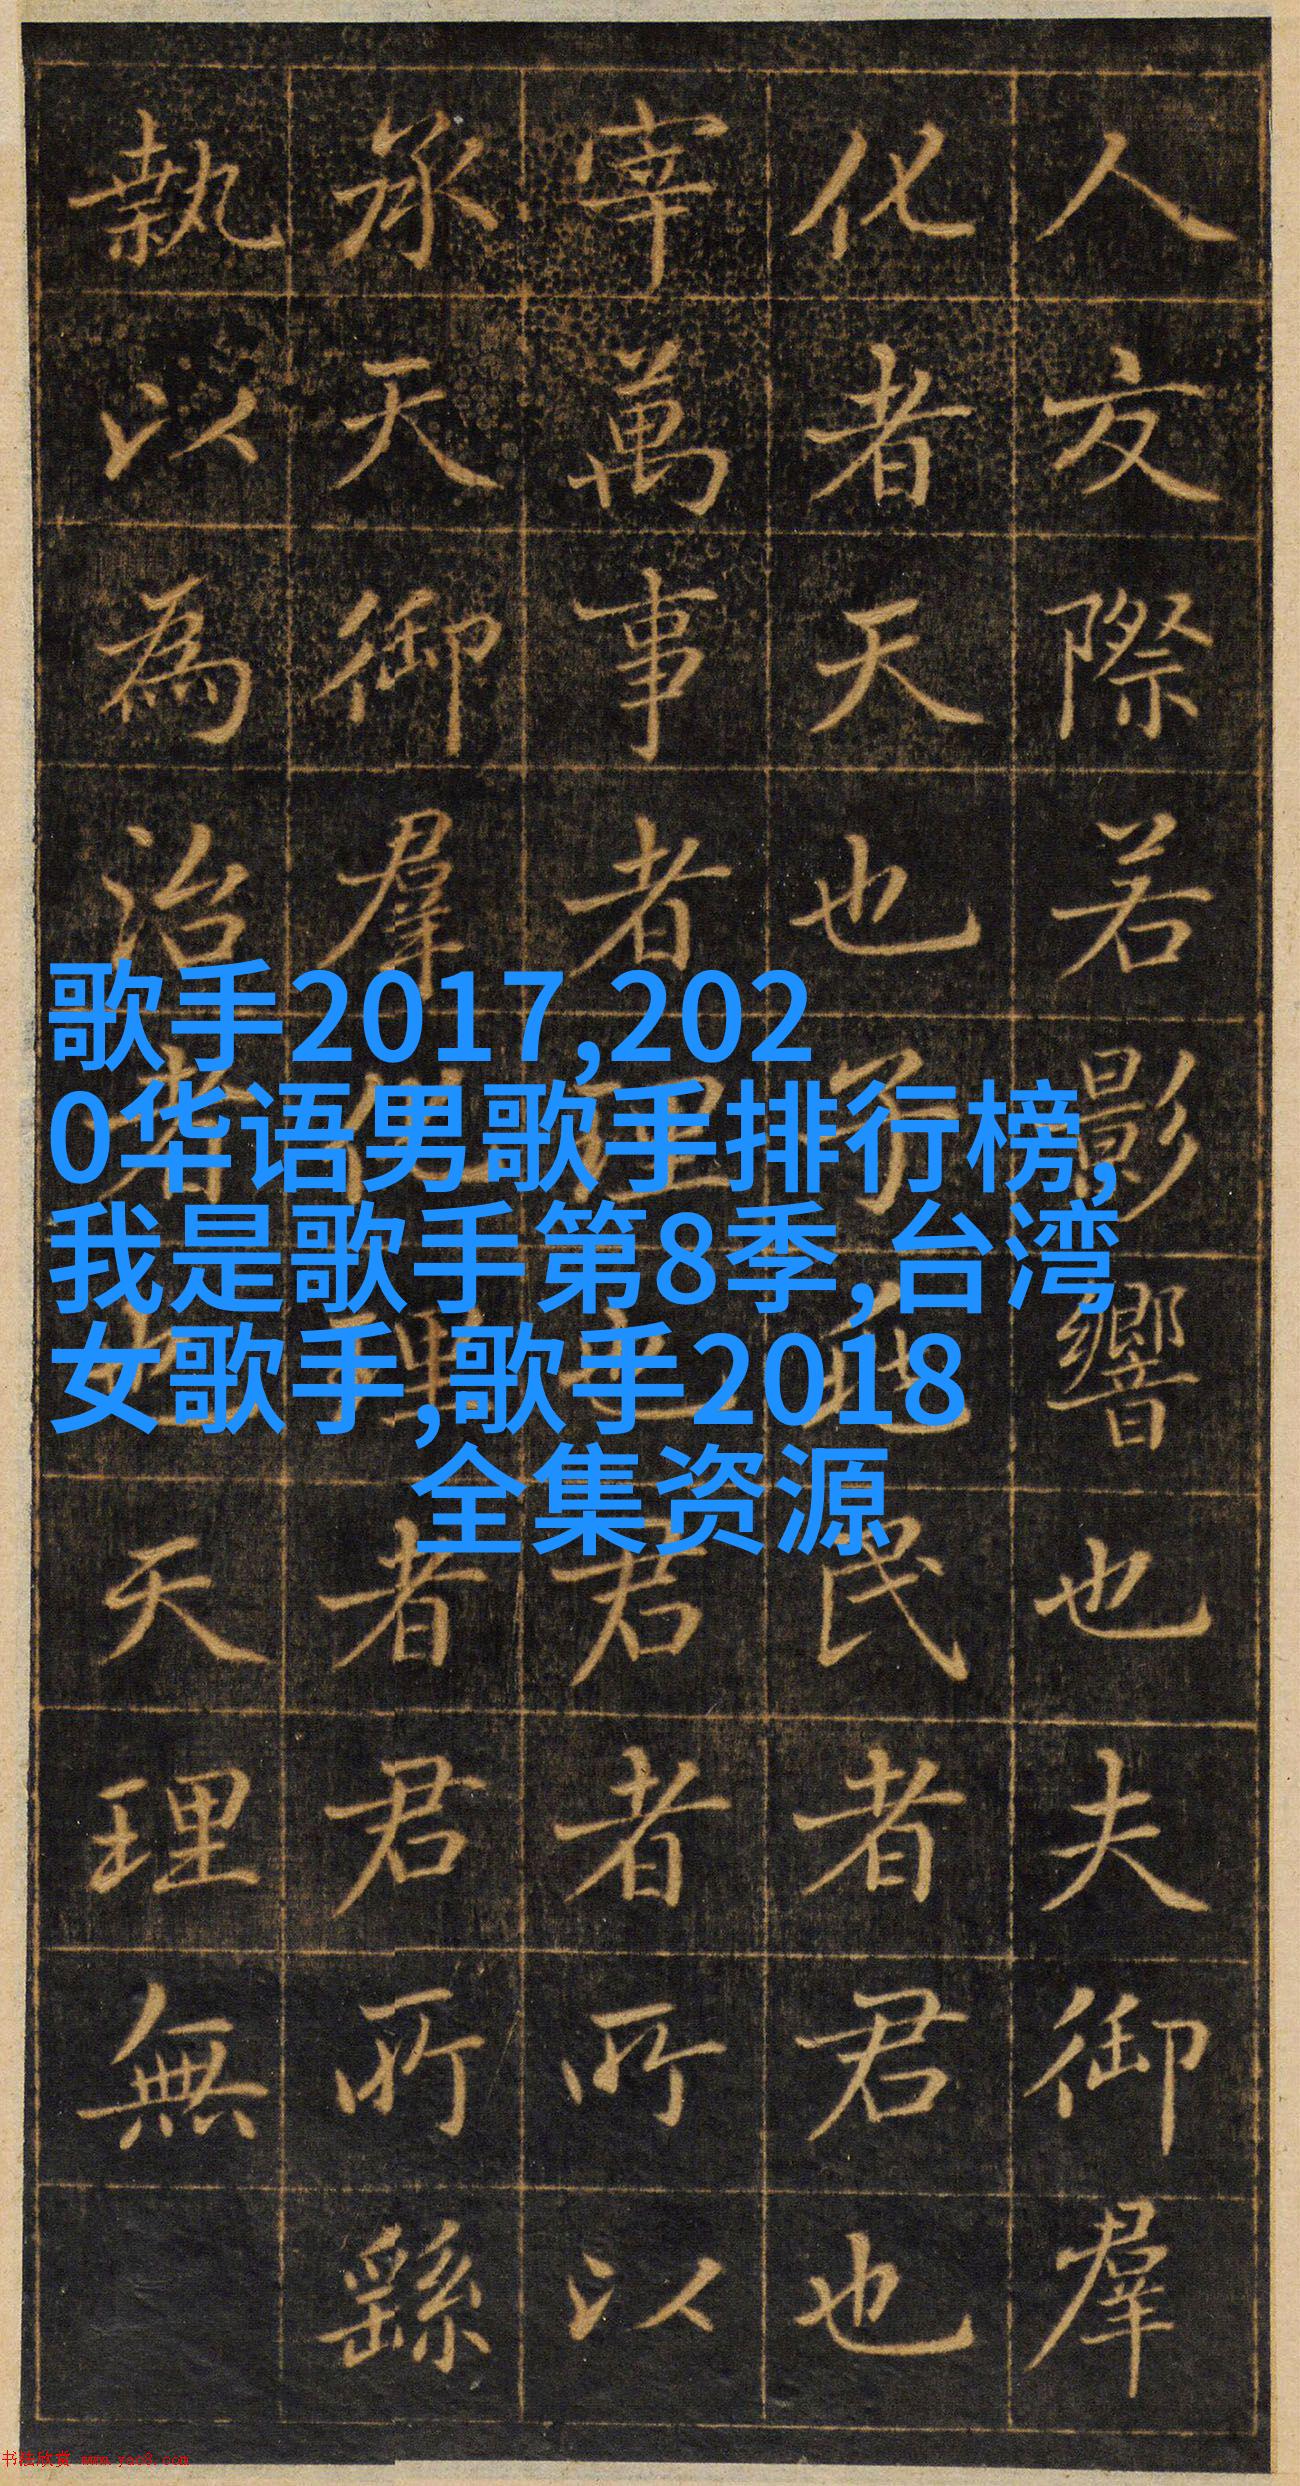 人交際若影響也夫御羣
化者天也子民者君也
宰萬事者理也君者所以
承天御羣化理者君所繇
執以為治者天理無
歌手2017,202
0华语男歌手排行榜,
我是歌手第8季,台湾
女歌手,歌手2018
全集资源
书法欣赏 www.yac8.com